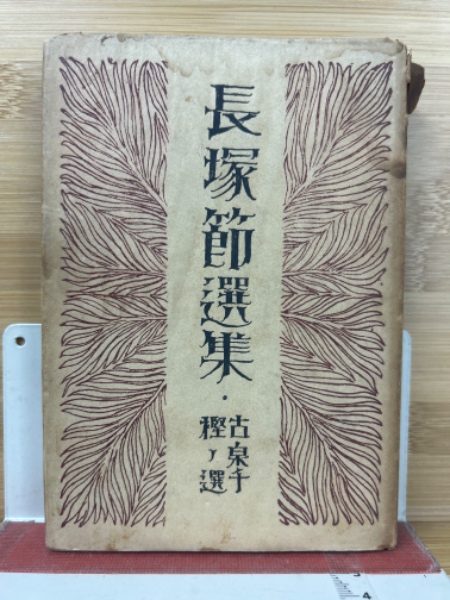 長塚節選集・
古泉千
樫選
3
4